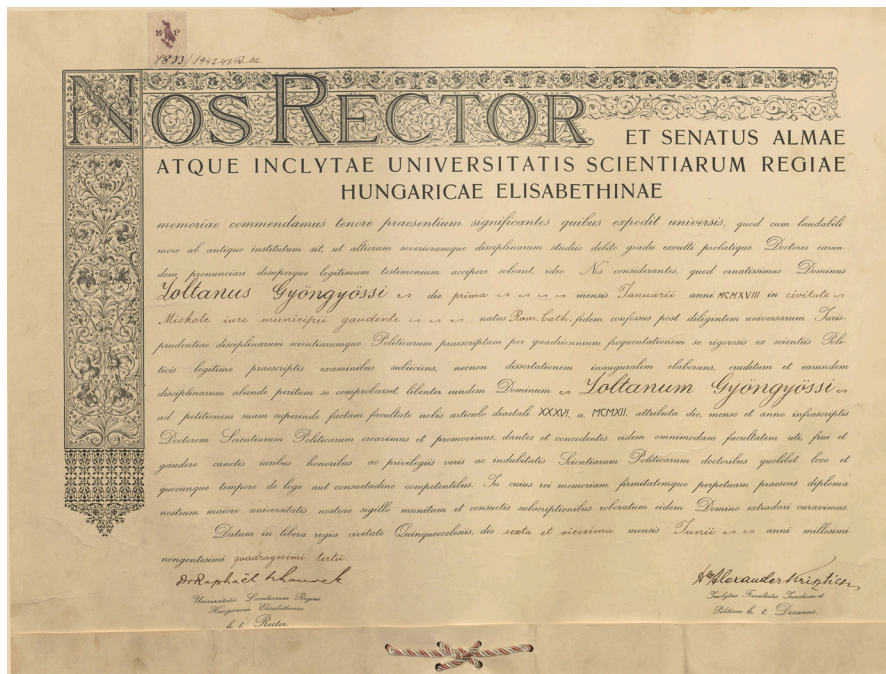 1833/1942.43.B.sz.
NOS RECTOR ET SENATUS ALMAE
ATQUE INCLYTAE UNIVERSITATIS SCIENTIARUM REGIAE
HUNGARICAE ELISABETHINAE
memoriae commendamus tenore praesentium significantes quibus expedit universis, quod cum laudabili
more ab antiquo institutum sit, ut altiorum severiorumque disciplinarum studiis debito gradu exculti probatique Doctores earun-
dem pronunciari desuperque legitimum testimonium accipere soleant, ideo Nos considerantes, quod ornatissimus Dominus
Zoltanus Gyöngyössi die prima mensis Januarii anni MCMXVIII in civitate
Miskolc iure municipii gaudente natus Rom. Cath. fidem confessus post diligentem universarum Juris-
prudentiae disciplinarum scientiarumque Politicarum praescriptam per quadriennium frequentationem se rigorosis ex scientiis Poli-
ticis legitime praescriptis examinibus subiiciens, necnon dissertationem inauguralem elaborans, eruditum et earundem
disciplinarum abunde peritum se comprobasset, libenter eundem Dominum Zoltanum Gyöngyössi
ad petitionem suam superinde factam facultate nobis articulo diaetali XXXVI. a. MCMXII. attributa die, mense et anno infrascriptis
Doctorem Scientiarum Politicarum creavimus et promovimus, dantes et concedentes eidem omnimodam facultatem uti, frui et
gaudere cunctis iuribus honoribus ac privilegiis veris ac indubitatis Scientiarum Politicarum doctoribus quolibet loco et
quocunque tempore de lege aut consuetudine competentibus. In cuius rei memoriam firmitatemque perpetuam praesens diploma
nostrum maiore universitatis nostrae sigillo munitum et consuetis subscriptionibus roboratum eidem Domino extradari curavimus.
Datum in libera regia civitate Quinqueecclesiis, die sexta et vicesima mensis Junii anni millesimi
nongentesimi quadragesimi tertii.
Dr Raphaël
Dr Alexander Krisztics
Universitatis Scientiarum Regiae
Hungaricae Elisabethinae
h. t. Rector.
Inclytae Facultatis Juridicae et
Politicae h. t. Decanus.